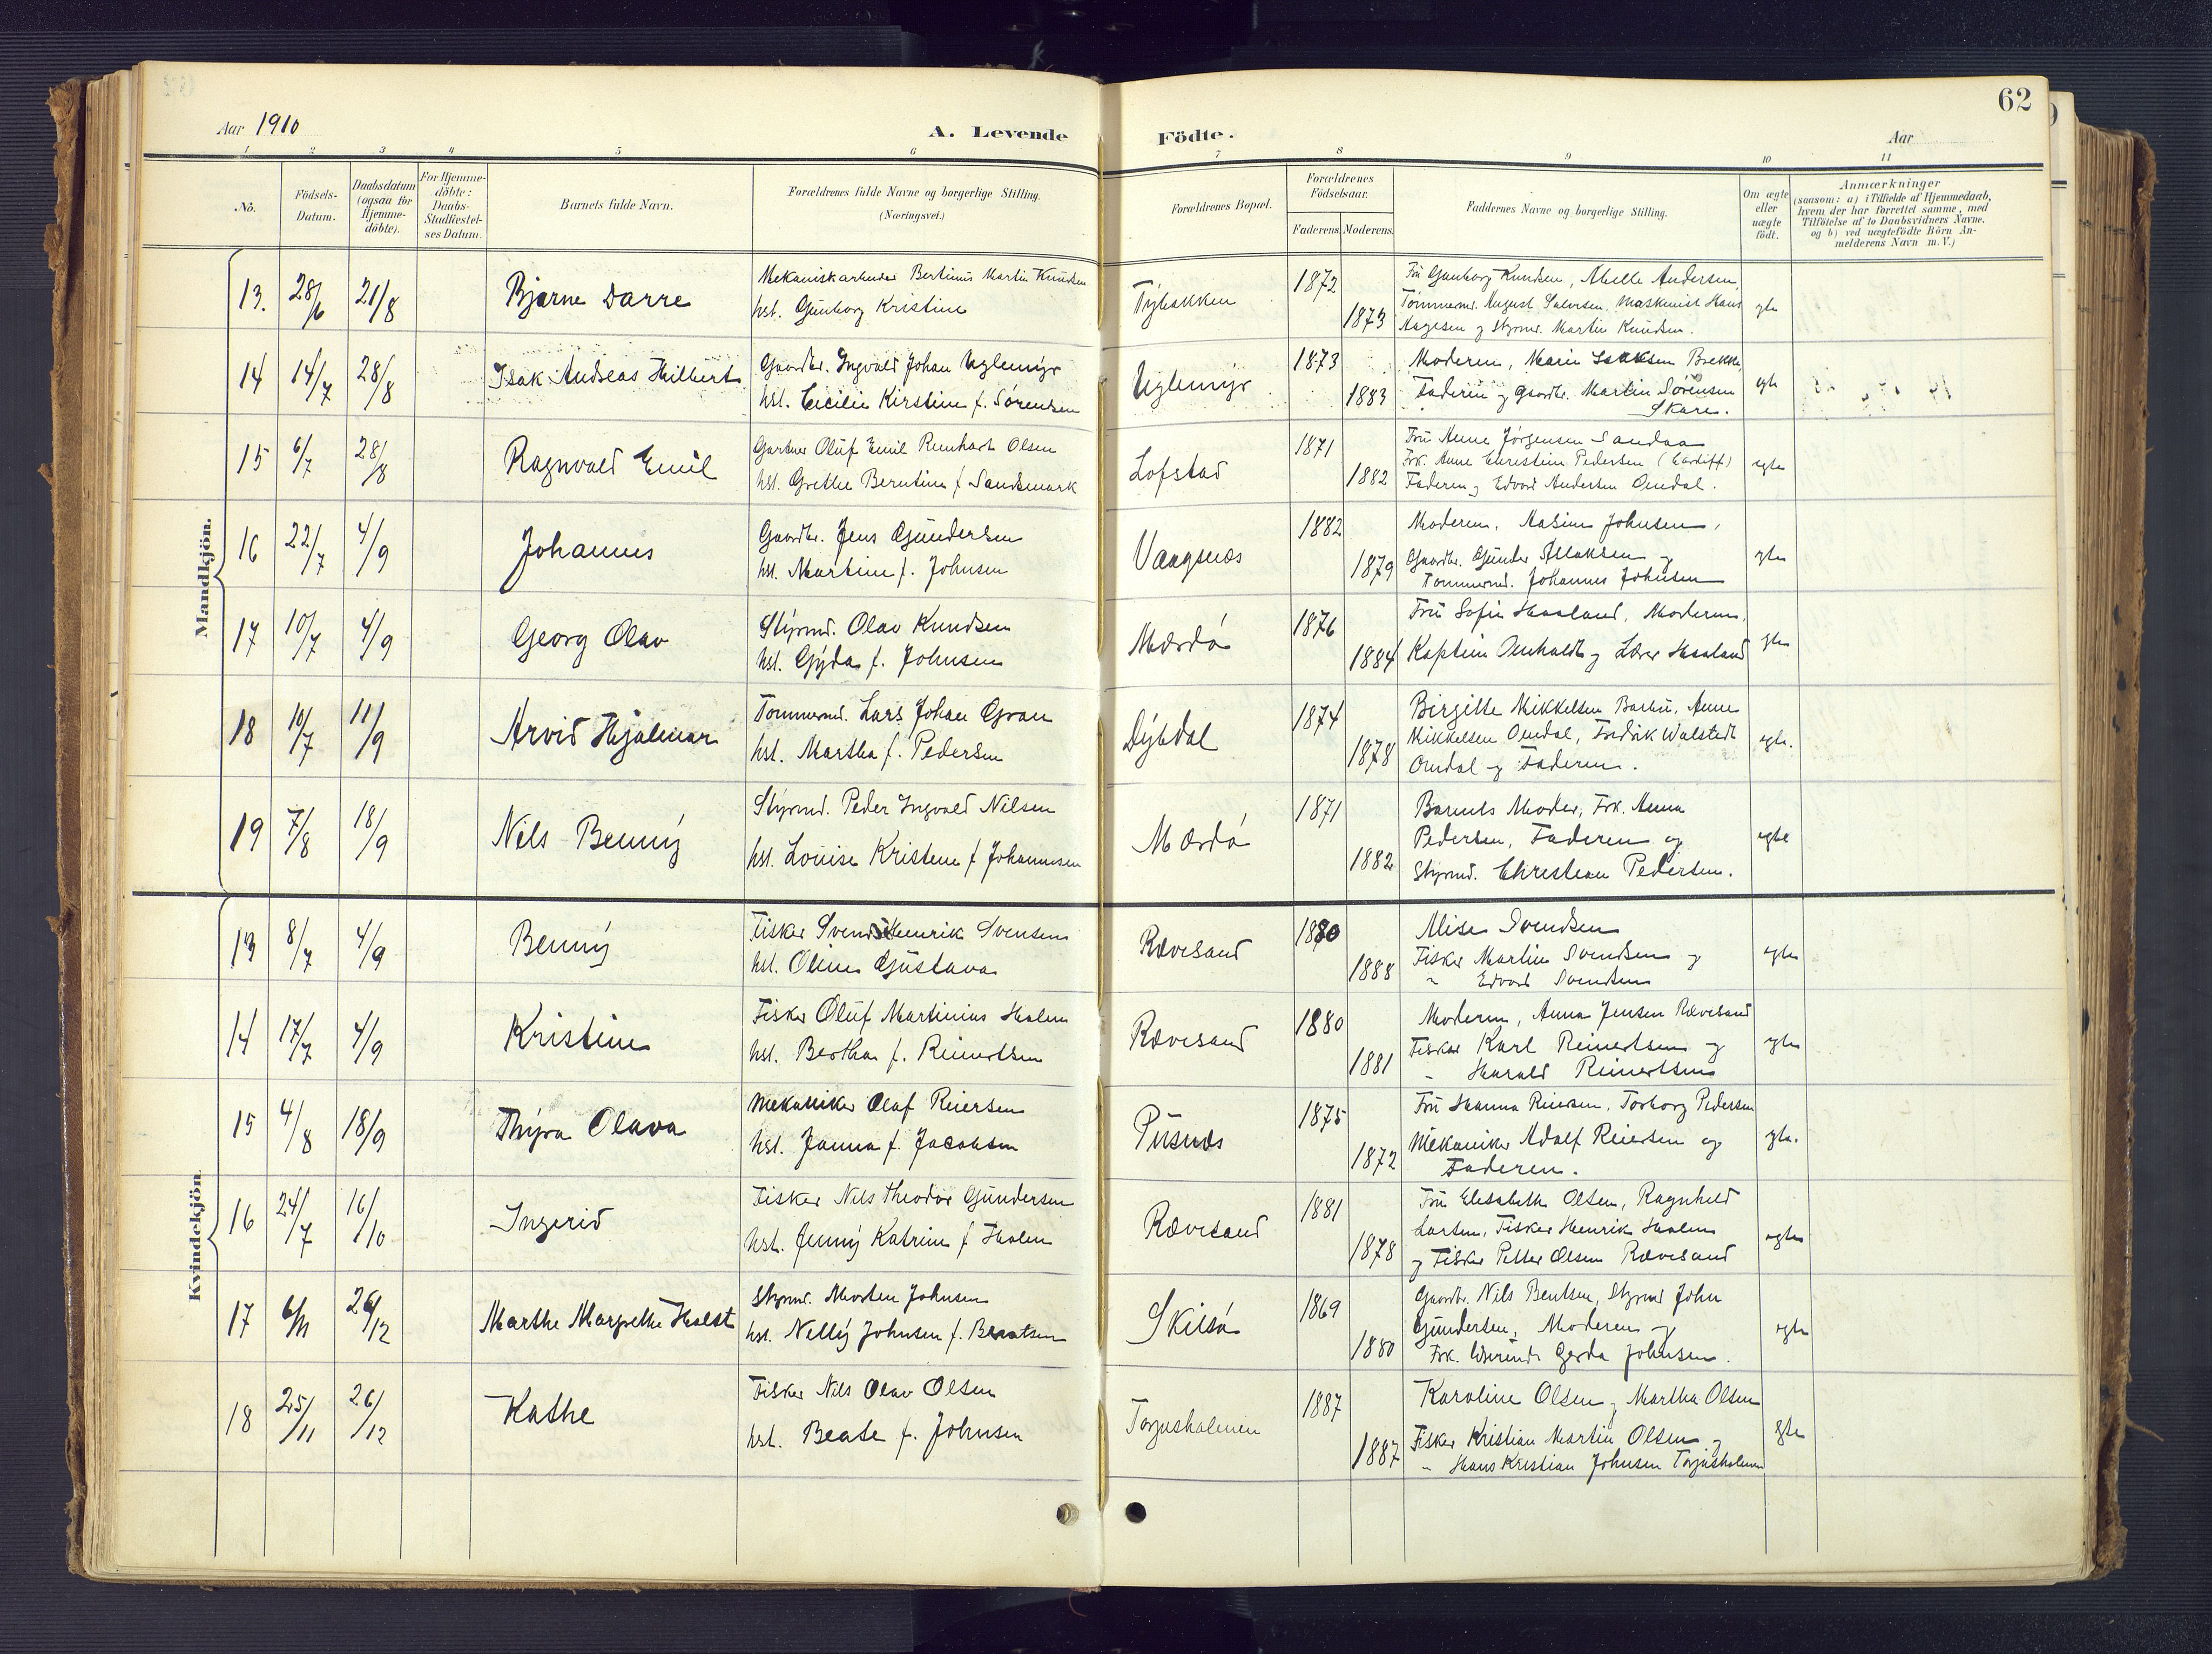 62
Aar 1910
A. Levende Födte.
Aar
1 2 3 4 5 6 7 8 9 10 11
No.
Födsels-Datum.
Daabsdatum (ogsaa for Hjemme-döbte).
For Hjemme-döbte: Daabs-Stadfæstel-ses Datum.
Barnets fulde Navn.
Forældrenes fulde Navne og borgerlige Stilling. (Næringsvei.)
Forældrenes Bopæl.
Forældrenes Födselsaar.
Faderens. Moderens.
Faddernes Navne og borgerlige Stilling.
Om ægte eller uægte födt.
Anmærkninger
(saasom: a) i Tilfælde af Hjemmedaab, hvem der har forrettet samme, med Tilföielse af to Daabsvidners Navne, og b) ved uægtefödte Börn An-melderens Navn m. V.)
Mandkjön.
13. 28/6 21/8 Bjarne Darre
Mekaniskarbeider Bertinus Martin Knudsen
hst. Gunborg Kristine
Tybakken 1872 1873
Fru Gunborg Knudsen, Andersen,
Tömmermd. August Salvesen, Maskinist Hans
Aagesen og Styrmd. Martin Knudsen.
egte
14 14/7 28/8 Isak Andreas Hilbert
Gaardbr. Ingvald Johan Uglemyr
hst. Cicilie Kirstine f. Sörensen
Uglemyr 1873 1883
Moderen, Marie Isaksen Brekke
Faderen og Gaardbr. Martin Sörensen
Skare.
egte
15 6/7 28/8 Ragnvald Emil
Gartner Oluf Emil Reinhart Olsen
hst. Grethe Berntine f. Sandsmark
Lofstad 1871 1882
Fru Anne Jörgensen Sandaa
Frk. Anne Christine Pedersen (Cardiff)
Faderen og Edvard Andersen Omdal.
egte
16 22/7 4/9 Johannes
Gaardbr. Jens Gundersen
hst. Martine f. Johnsen
Vaagsnes 1882 1879
Moderen, Aasine Johnsen,
Gaardbr. Gunder Aslaksen og
Tömmermd. Johannes Johnsen
egte
17 10/7 4/9 Georg Olav
Styrmd. Olav Knudsen
hst. Gyda f. Johnsen
Mærdö 1876 1884
Fru Sofie Haaland, Moderen,
Kaptein Omholdt og Lærer Haaland
egte
18 10/7 11/9 Arvid Hjalmar
Tömmermd. Lars Johan Gran
hst. Martha f. Pedersen
Dybdal 1874 1878
Birgitte Mikkelsen Barbu, Anne
Mikkelsen Omdal, Fredrik Walstedt
Omdal og Faderen.
egte.
19 7/8 18/9 Nils Benny
Styrmd. Peder Ingvald Nilsen
hst. Louise Kristene f. Johannesen
Mærdö 1871 1882
Barnets Moder, Frk. Anna
Pedersen, Faderen og
Styrmd. Christian Pedersen.
egte
Kvindekjön
13 8/7 4/9 Benny
Fisker Svend Henrik Svensen
hst. Oline Gustava
Rævesand 1880 1888
Alise Svendsen
Fisker Martin Svendsen og
" Edvard Svendsen
egte
14 17/7 4/9 Kristine
Fisker Oluf Martinius Halen
hst. Bertha f. Reinertsen
Rævesand 1880 1881
Moderen, Anna Jensen Rævesand
Fisker Karl Reinertsen og
" Harald Reinertsen
egte
15 4/8 18/9 Thyra Olava
Mekaniker Olaf Reiersen
hst. Janna f. Jacobsen
Pusnes 1875 1872
Fru Hanna Reiersen, Torborg Pedersen
Mekaniker Adolf Reiersen og
Faderen.
egte.
16 24/7 16/10 Ingerid
Fisker Nils Theodor Gundersen
hst. Jenny Katrine f. Halen
Rævesand 1881 1878
Fru Elisabeth Olsen, Ragnhild
Larsen, Fisker Henrik Halen
og Fisker Petter Olsen Rævesand
egte
17 6/11 26/12 Marthe Margrethe Holst
Styrmd. Morten Johnsen
hst. Nelly Johnsen f. Berntsen
Skilsö 1869 1880
Gaardbr. Nils Bentsen, Styrmd John
Gundersen, Moderen og
Frk. Gerda Johnsen.
egte
18 25/11 26/12 Kathe
Fisker Nils Olav Olsen
hst. Beate f. Johnsen
Torjusholmen 1887 1887
Karoline Olsen og Martha Olsen
Fisker Kristian Martin Olsen og
" Hans Kristian Johnsen Torjusholmen
egte